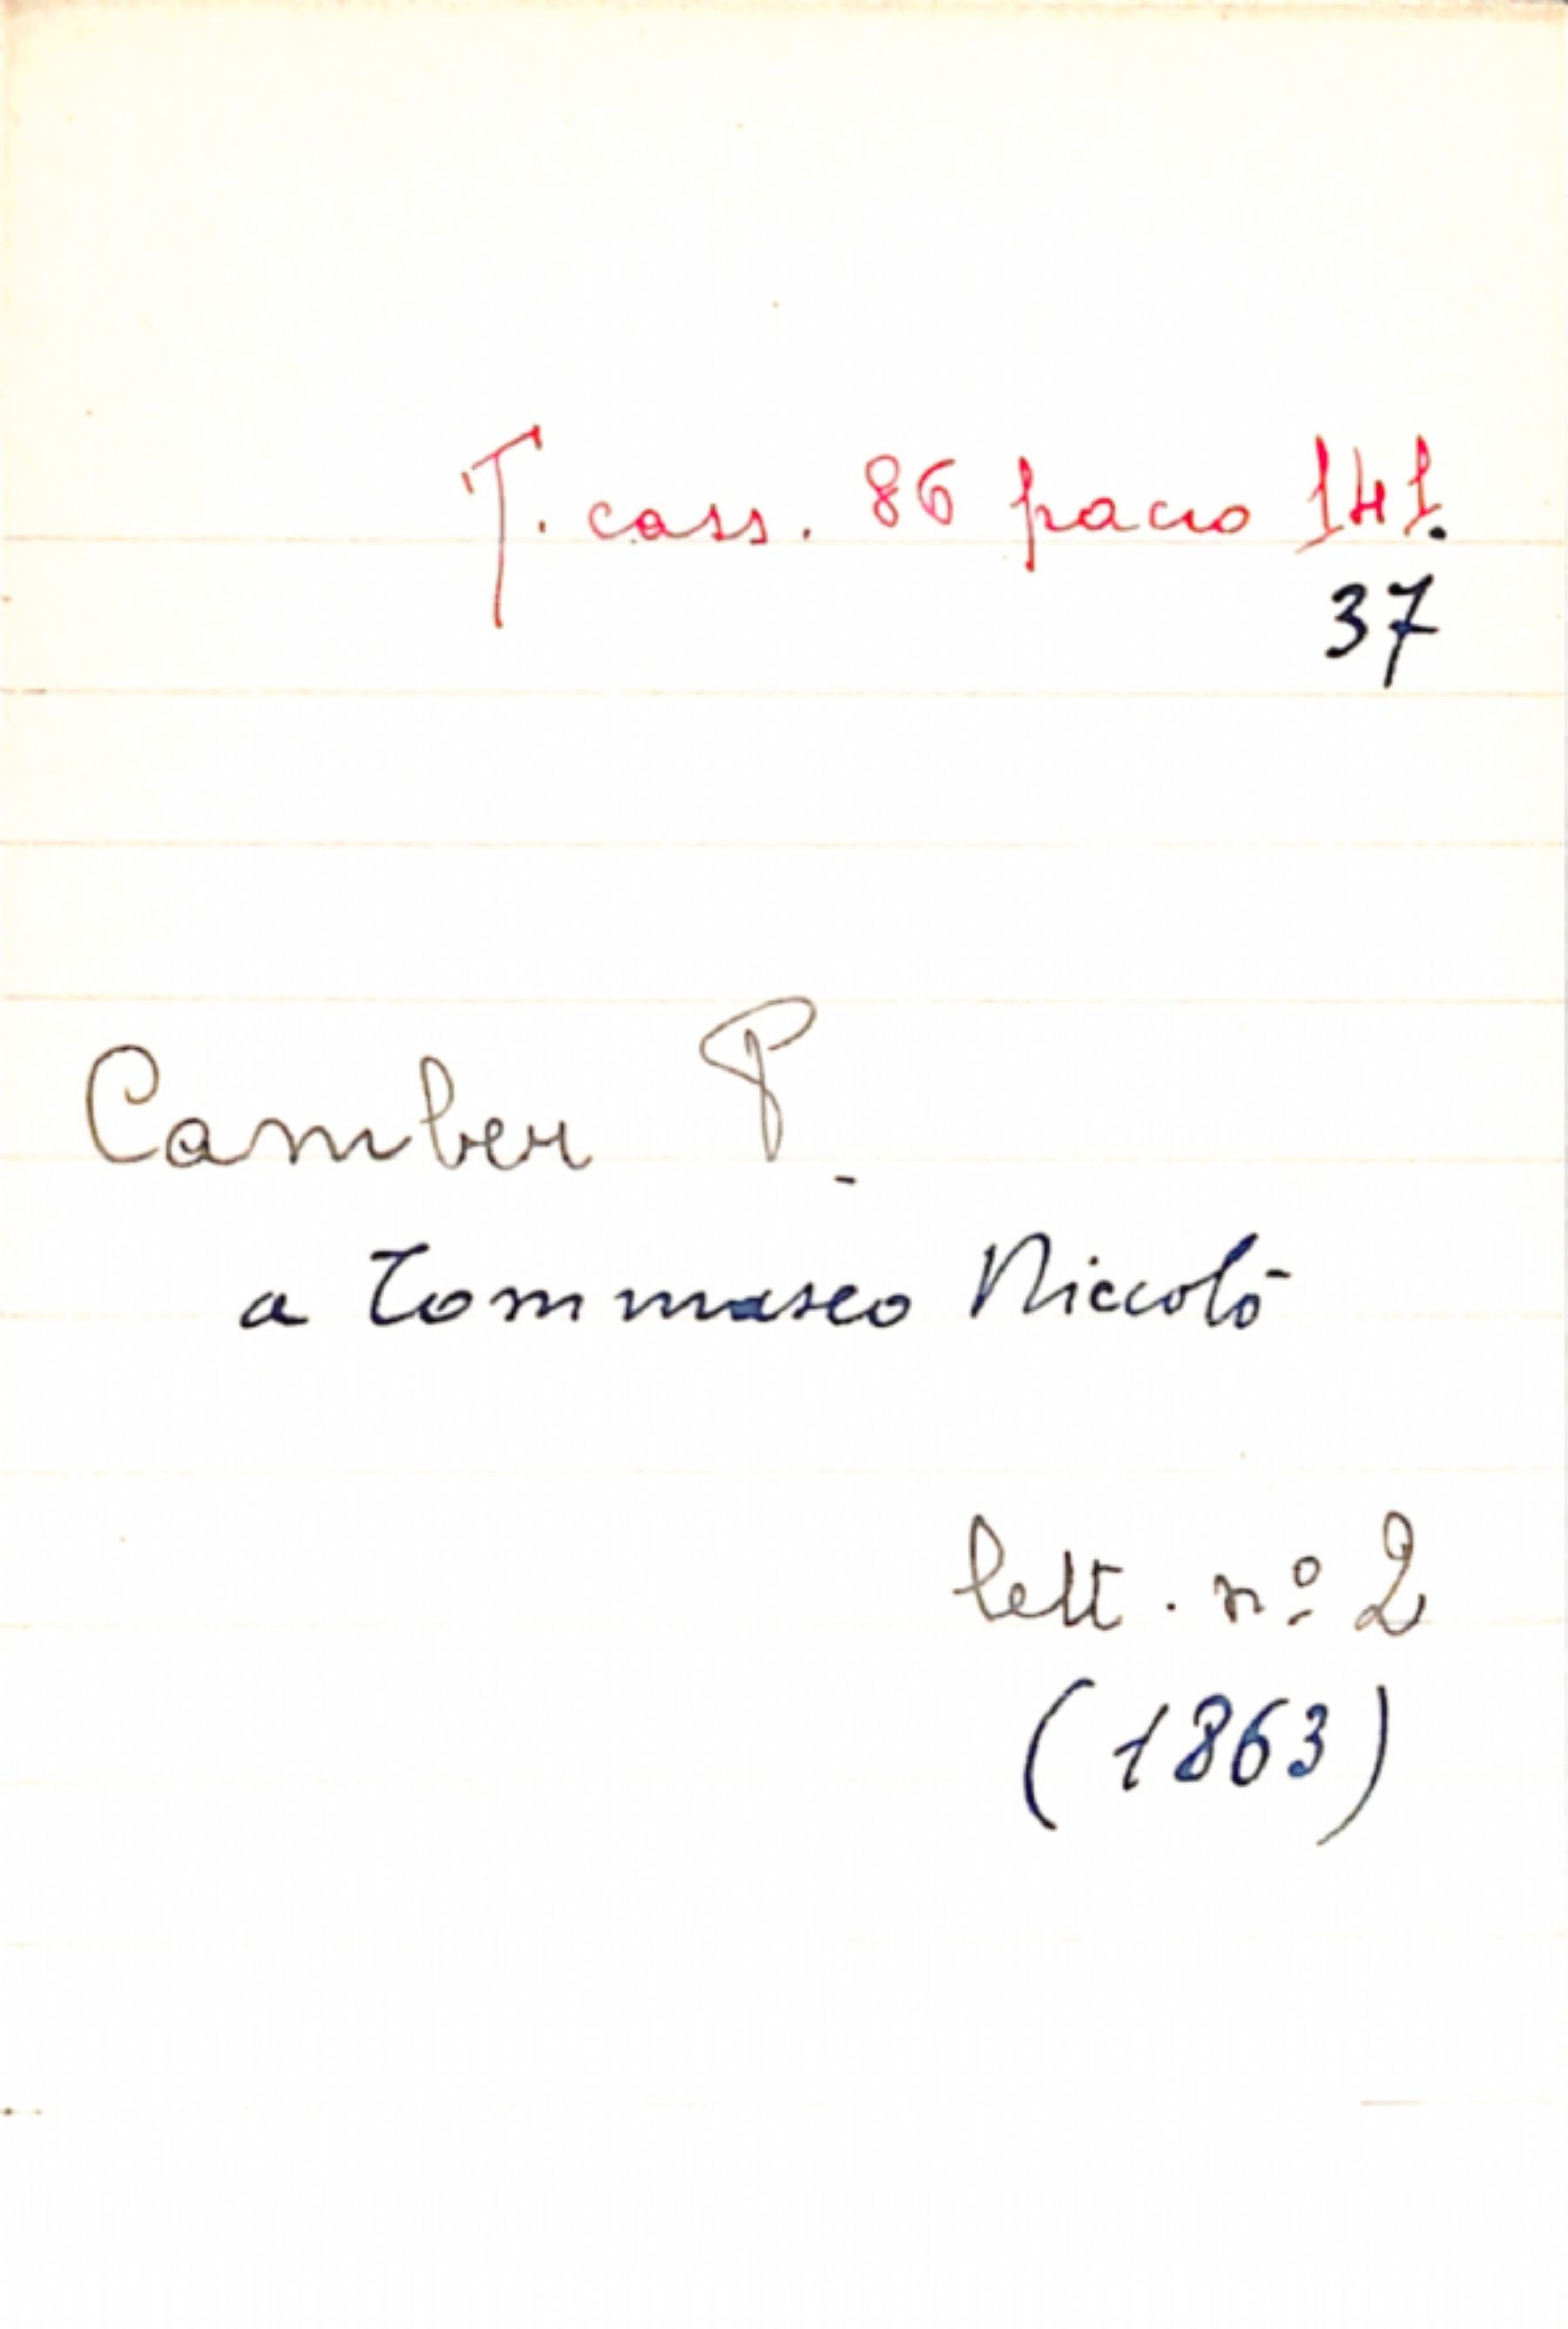 T. cass. 86 pacco 141.
37
Camber P.
a Tommaseo Niccolò
lett. nº 2
(1863)